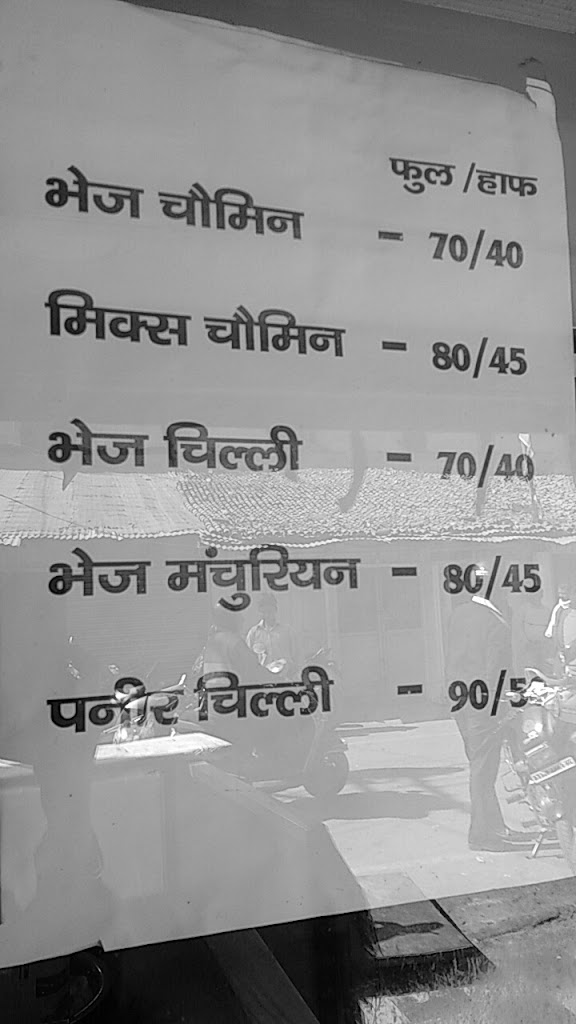 फुल /हाफ
भेज चौमिन - 70/40
मिक्स चौमिन - 80/45
भेज चिल्ली - 70/40
भेज मंचुरियन - 80/45
पनीर चिल्ली -